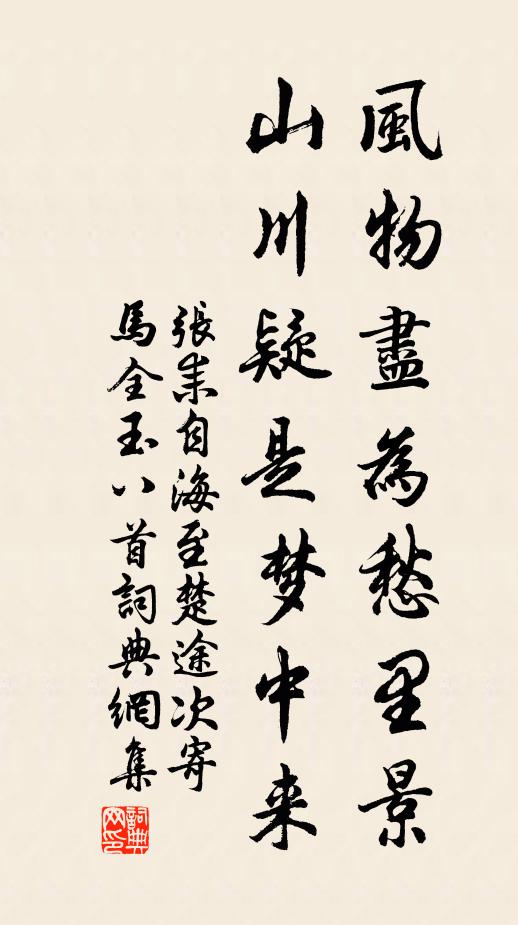 風物盡為愁里景
山川疑是梦中来
張耒自海至楚途次寄
馬全玉八首詞典網集
詞典
网印